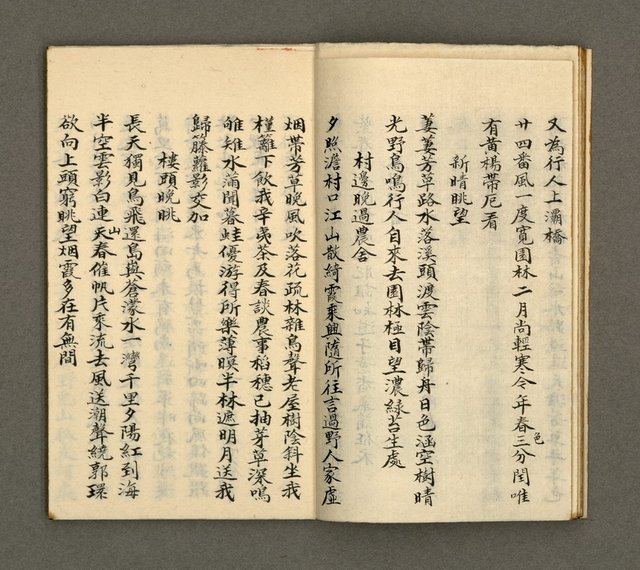 又為行人上灞橋
廿四番風一度寬園林二月尚輕寒今年春色三分閏唯
有黃楊帶厄看
新晴眺望
萋萋芳草路水落溪頭渡雲陰帶歸舟日色涵空樹晴
光野鳥鳴行人自來去園林極目望濃綠苔生處
村邊晚過農舍
夕照澹村口江山散綺霞乘興隨所往言過野人家虛
烟帶芳草晚風吹落花疏林雜鳥聲老屋樹陰斜坐我
槿籬下飲我辛夷茶及春談農事稻穗已抽芽草深鳴
雊雉水滿聞暮蛙優游得所樂薄暝半林遮明月送我
歸籐蘿影交加
樓頭晚眺
長天獨見鳥飛還島與蒼濛水一灣千里夕陽紅到海
半空雲影白連山天春催帆片乘流去風送潮聲繞郭環
欲向上頭窮眺望烟霞多在有無間